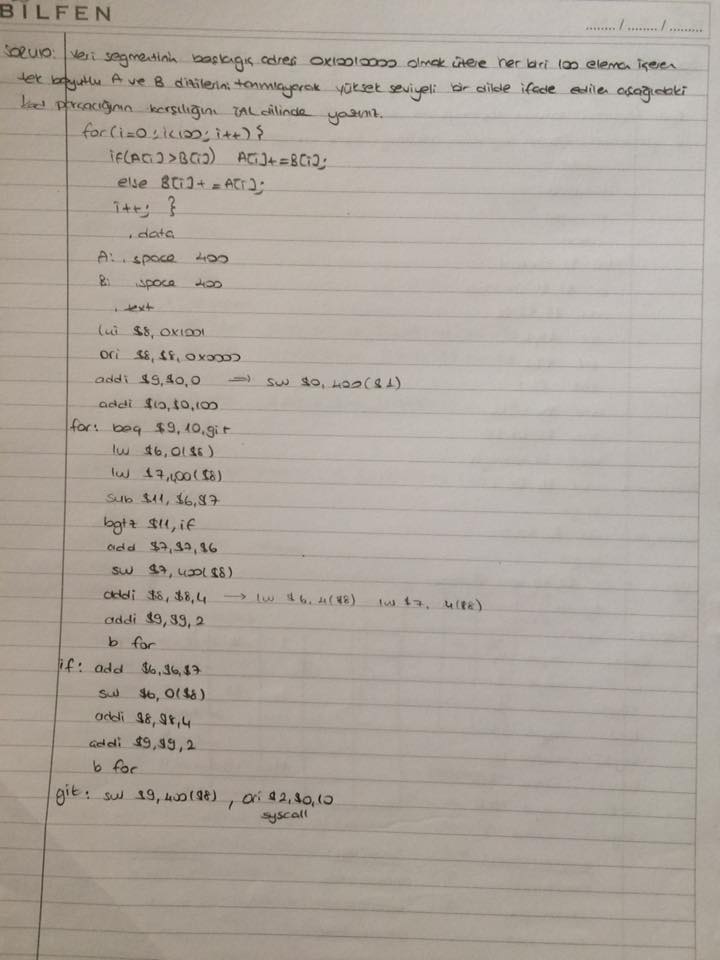 BİLFEN
......../......../.........
SORU10: Veri segmentinin başlangıç adres 0x10010000 olmak üzere her biri 100 eleman içeren
tek boyutlu A ve B dizilerini tanımlayarak yüksek seviyeli bir dilde ifade edilen aşağıdaki
kod parçacığının karşılığını TAL dilinde yazınız.
for(i=0; i<100; i++){
if(A[i]>B[i]) A[i]+=B[i];
else B[i]+=A[i];
i++; }
.data
A: .space 400
B: .space 400
.text
lui $8, 0x1001
ori $8, $8, 0x0000
addi $9, $0, 0 => sw $0, 400($1)
addi $10, $0, 100
for: beq $9, 10, git
lw $6, 0($8)
lw $7, 400($8)
sub $11, $6, $7
bgtz $11, if
add $7, $7, $6
sw $7, 400($8)
addi $8, $8, 4 → lw $6, 4($8) lw $7, 4($8)
addi $9, $9, 2
b for
if: add $6, $6, $7
sw $6, 0($8)
addi $8, $8, 4
addi $9, $9, 2
b for
git: sw $9, 400($8) , ori $2, $0, 10
syscall